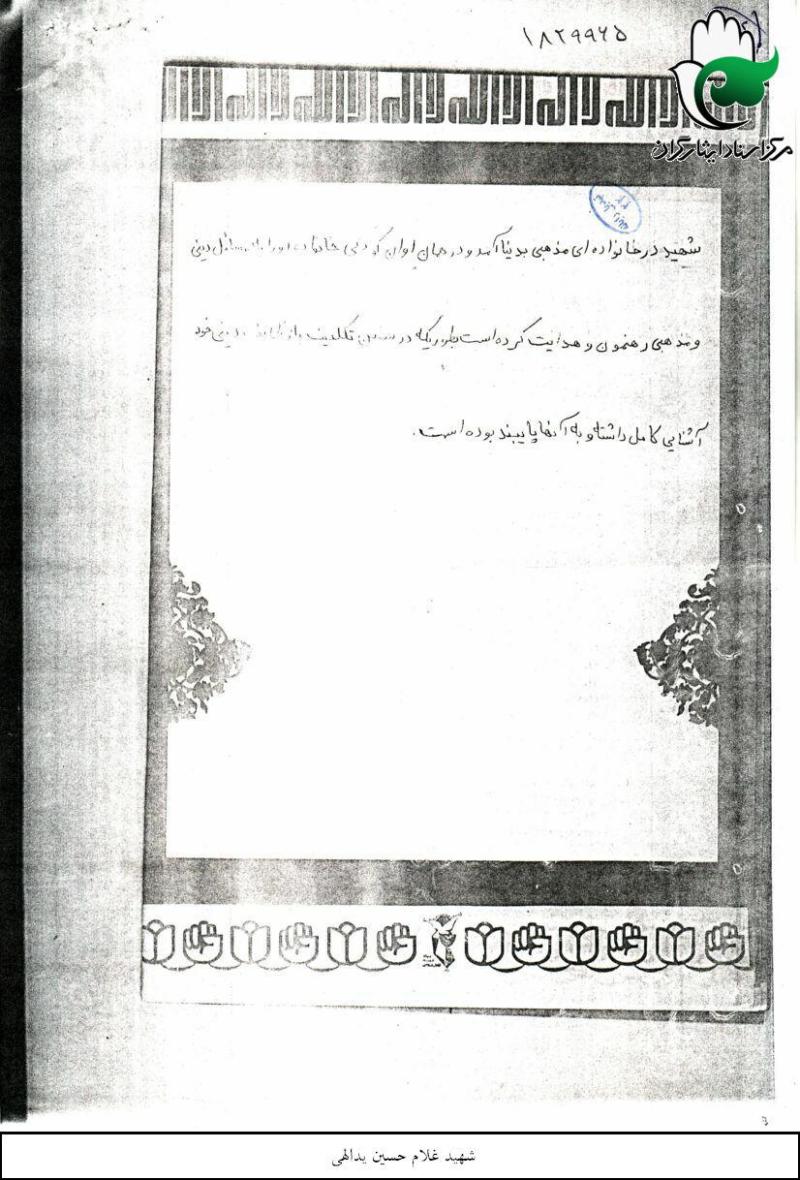 ۱۸۲۹۹۶۵
مرکز اسناد ایثارگران
شهید در خانواده ای مذهبی بدنیا آمد و در همان اوان کودکی خانواده او را به مسائل دینی
و مذهبی رهنمون و هدایت کرده است بطوریکه در سنین تکلیف با وظایف دینی خود
آشنایی کامل داشته و به آنها پایبند بوده است.
شهید غلام حسین یدالهی